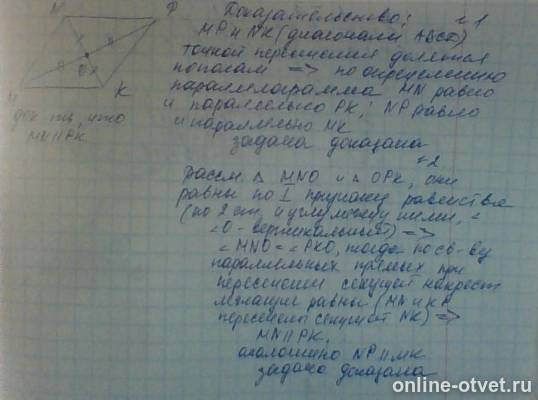 N P
M O K
док-ть, что
MN||PK
Доказательство: 1
MP и NK (диагонали ABCD)
точкой пересечения делятся
пополам => по определению
параллелограмма MN равно
и параллельно PK; NP равно
и параллельно MK
задача доказана
2
рассм. △ MNO и △ OPK, они
равны по I признаку равенства
(по 2 ст. и углу между ними, ∠
∠O - вертикальный) =>
∠MNO = ∠PKO, тогда по св-ву
параллельных прямых при
пересечении секущей накрест
лежащие равны (MN и KP
пересечены секущей NK) =>
MN || PK.
аналогично NP || MK
задача доказана
online-otvet.ru